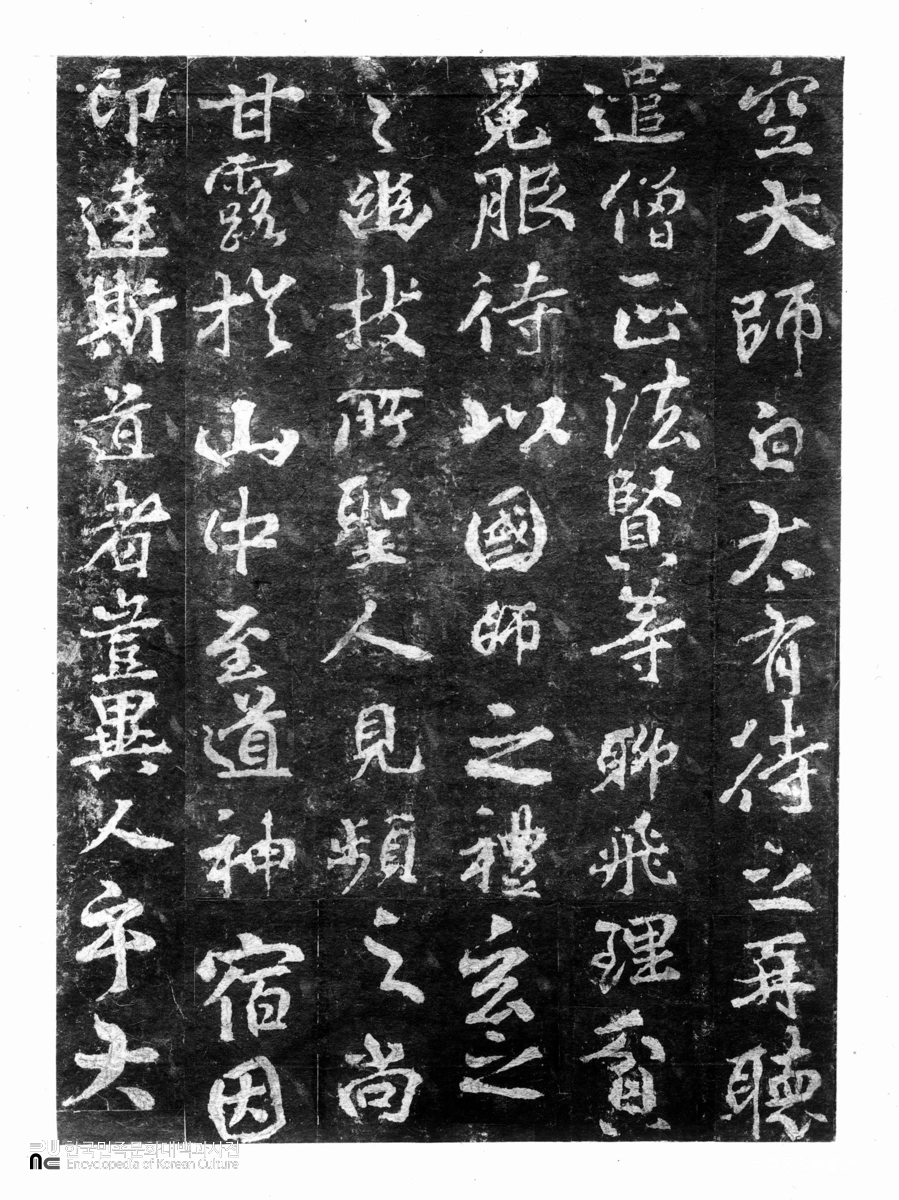 空大師有待之再聽
遣僧正法賢等聊飛理負
冕服待以國師之禮玄之
々幽技所聖人見頻之尚
甘露於山中至道神宿因
印達斯道者豈異人乎大
한국민족문화대백과사전
Encyclopedia of Korean Culture